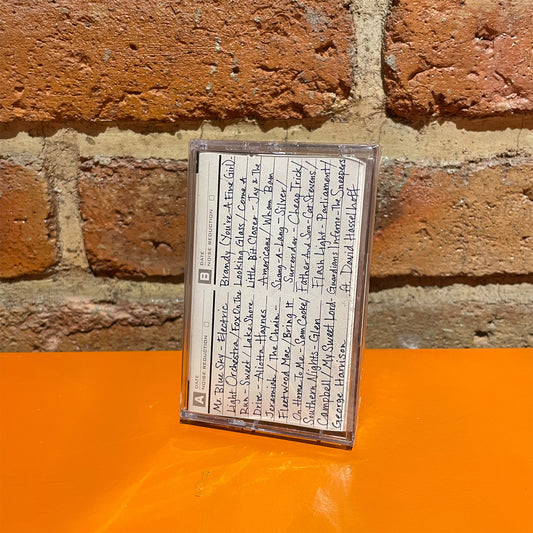 A DATE
NOISE REDUCTION
Mr Blue Sky - Electric
Light Orchestra / Fox On The
Run - Sweet / Lake Shore
Drive - Aliotta Haynes
Jeremiah / The Chain -
Fleetwood Mac / Bring It
On Home To Me - Sam Cooke /
Southern Nights - Glen
Campbell / My Sweet Lord -
George Harrison
B DATE
NOISE REDUCTION
Brandy (You're A Fine Girl) -
Looking Glass / Come A
Little Bit Closer - Jay & The
Americans / Wham Bam
Shang-A-Lang - Silver /
Surrender - Cheap Trick /
Father & Son - Cat Stevens /
Flash Light - Parliament /
Guardians Inferno - The Sneepers
ft. David Hasselhoff